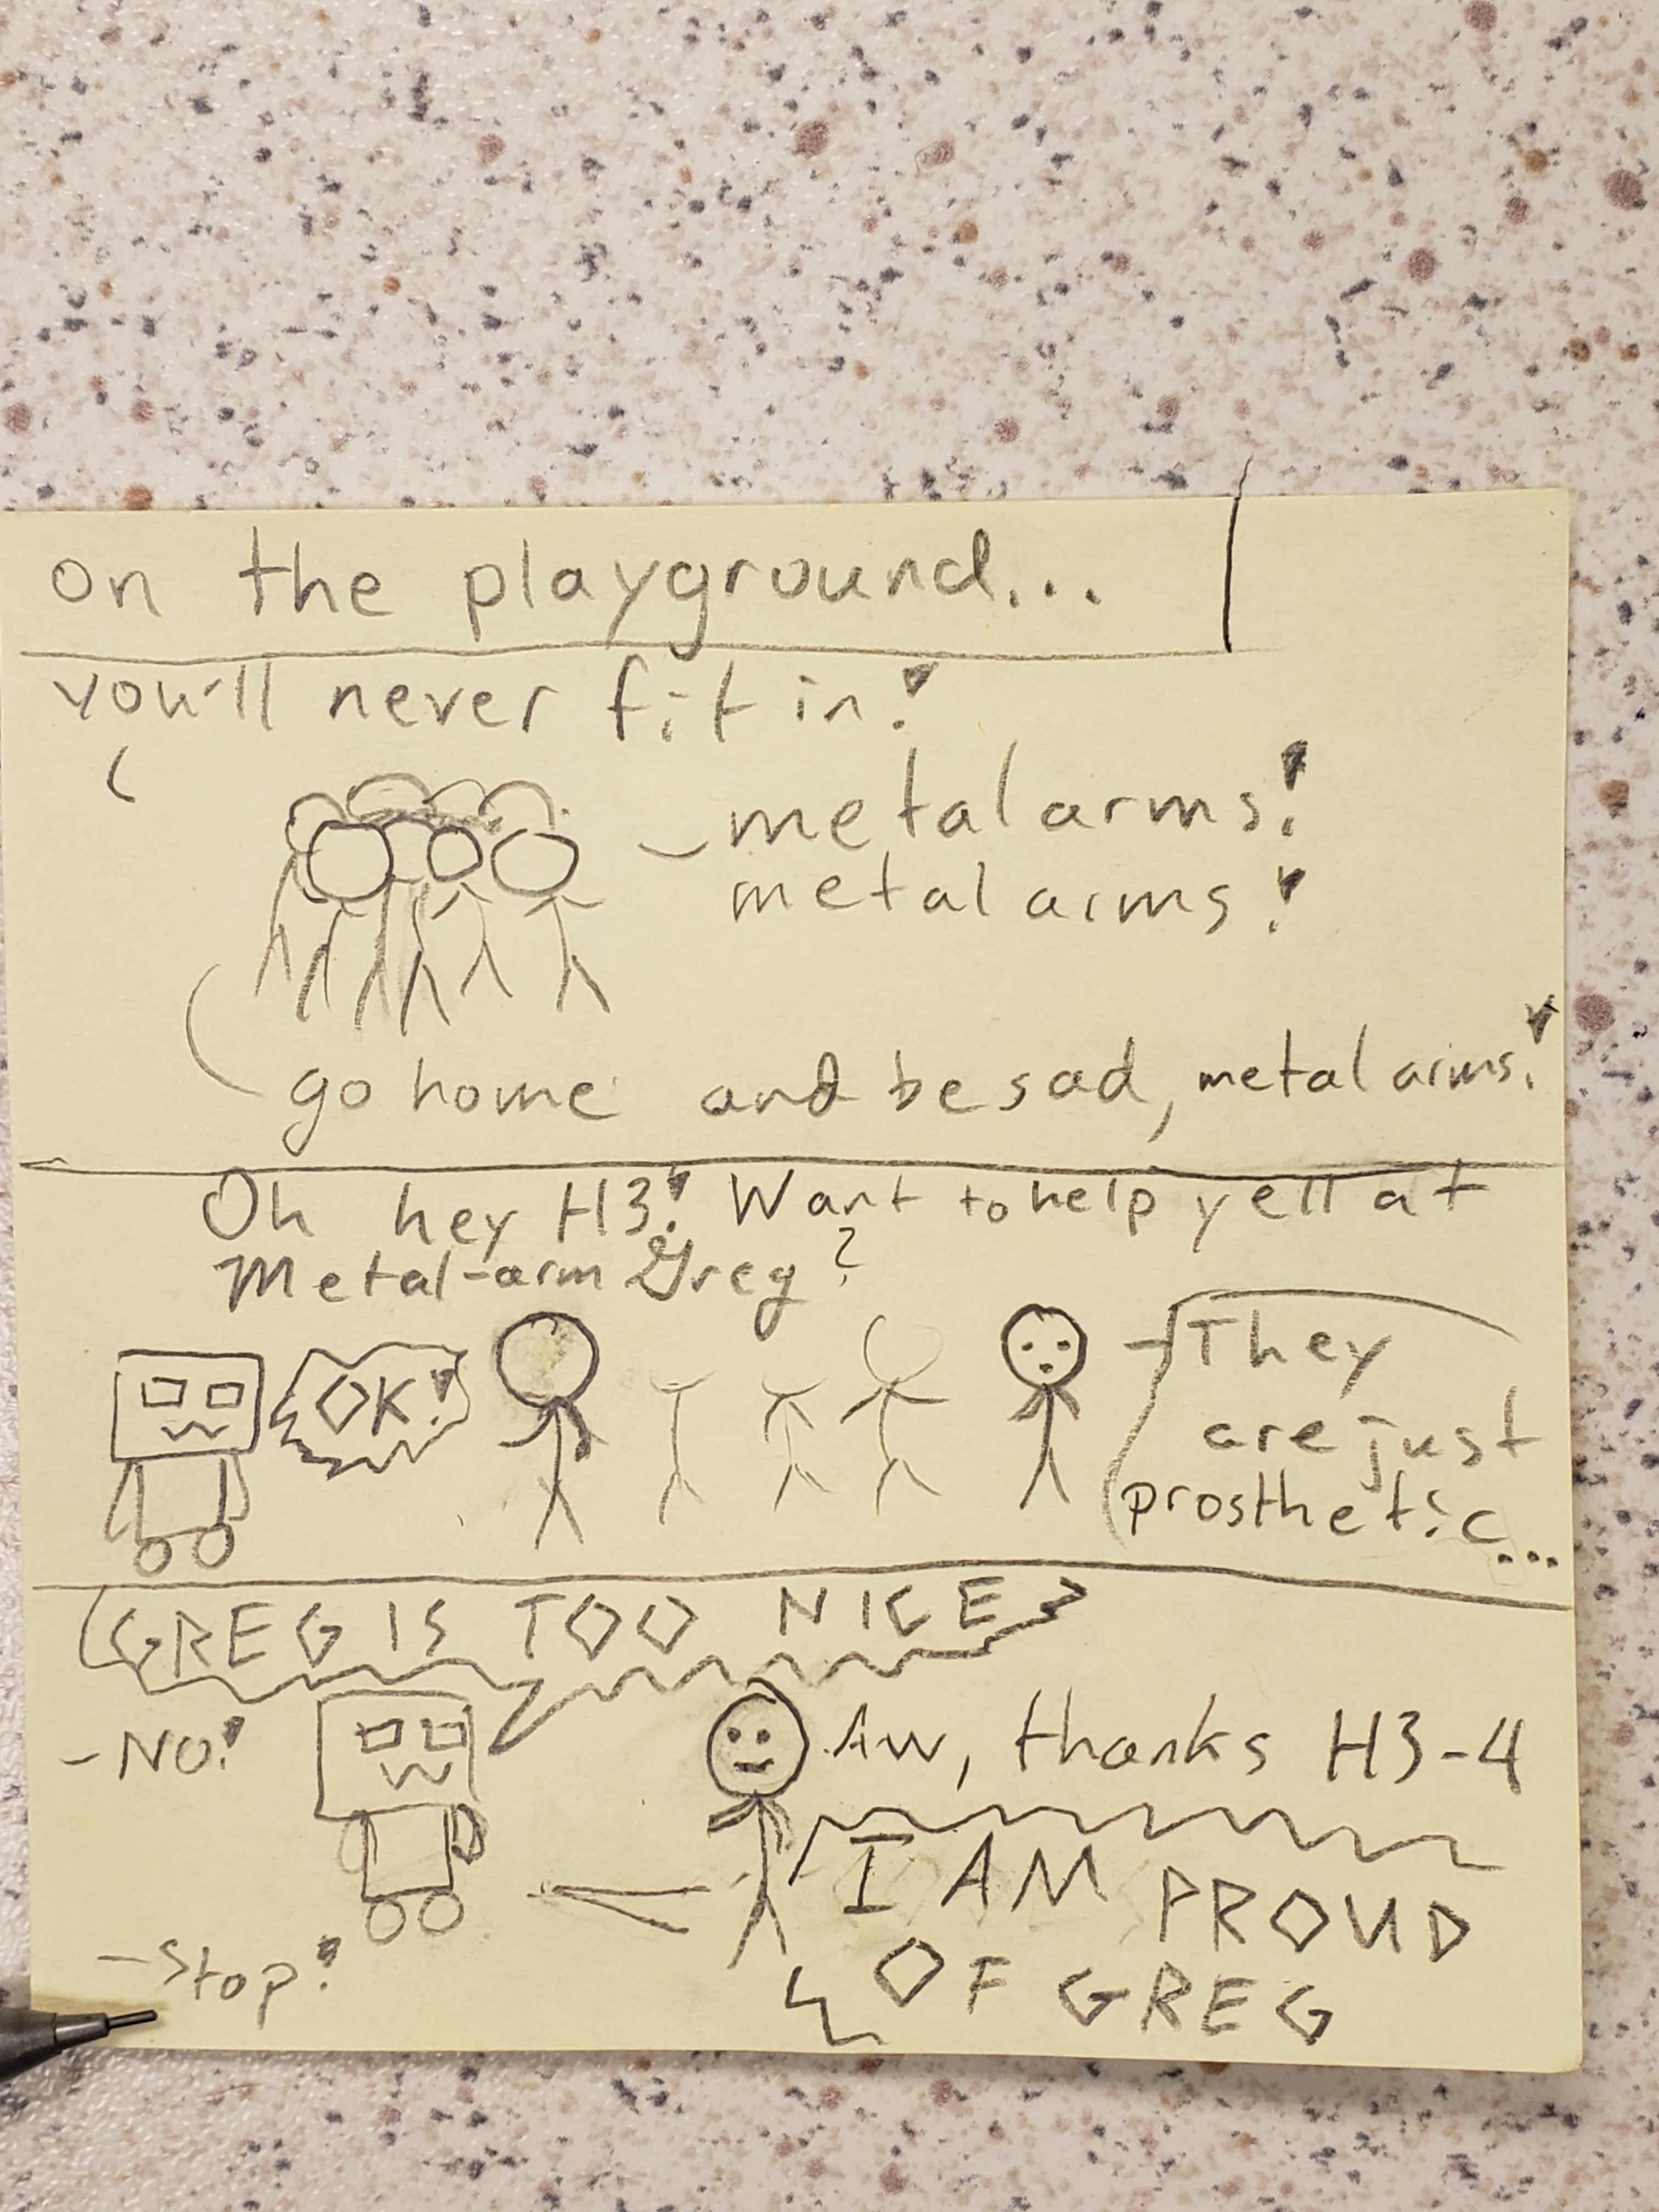 on the playground...
you'll never fit in!
metal arms!
metal arms!
go home and be sad, metal arms!
Oh hey H3! Want to help yell at
Metal-arm Greg?
OK!
They
are just
prosthetic...
GREG IS TOO NICE
-NO!
Aw, thanks H3-4
I AM PROUD
OF GREG
-Stop!